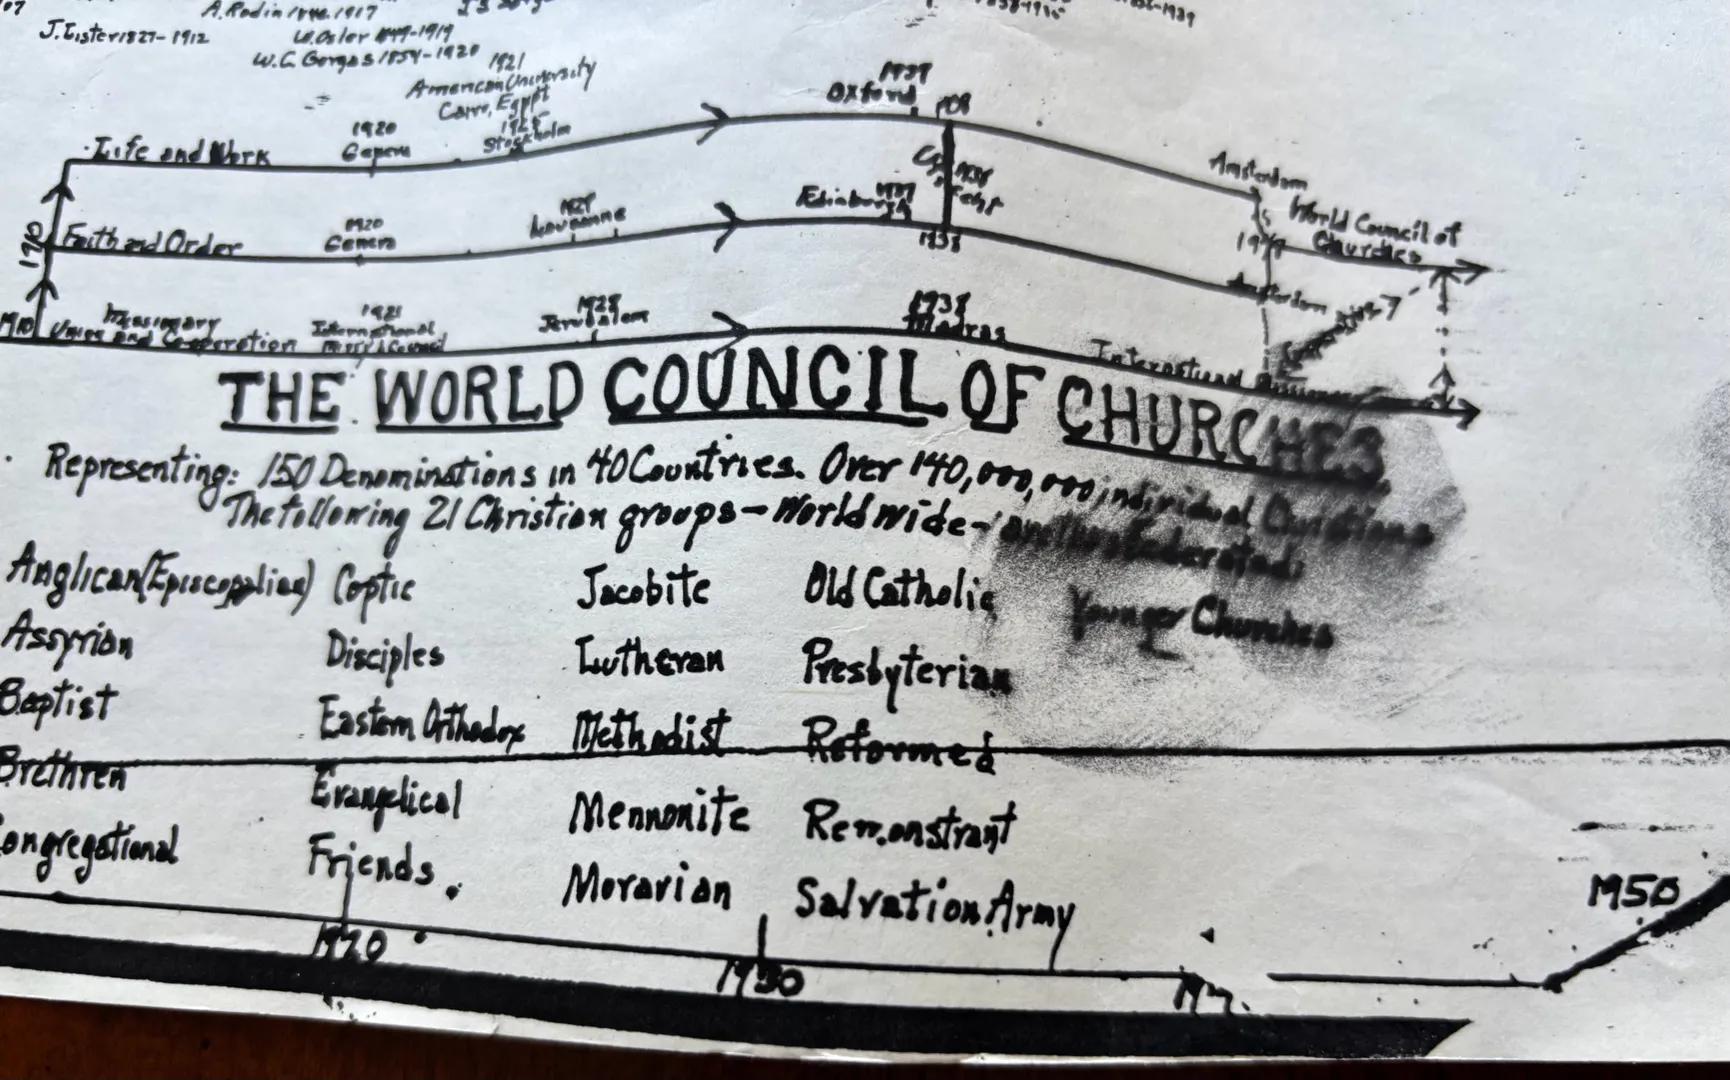 A. Rodin 1840-1917
J. Lister 1827-1912
W. Osler 1849-1919
W.C. Gorgas 1854-1920
1921
American University
Cairo, Egypt
1937
Oxford
1925
Stockholm
1920
Geneva
Life and Work
Amsterdam
1938
Edinburgh 1937
1927
Lausanne
1920
Geneva
Faith and Order
1910
1938
World Council of
Churches
Amsterdam
1910
Missionary
Union and Co-operation
1921
International
1928
Jerusalem
1938
Madras
International
THE WORLD COUNCIL OF CHURCHES
Representing: 150 Denominations in 40 Countries. Over 140,000,000 individual Christians
The following 21 Christian groups - World wide -
Anglican (Episcopalian) Coptic Jacobite Old Catholic Younger Churches
Assyrian Disciples Lutheran Presbyterian
Baptist Eastern Orthodox Methodist Reformed
Brethren Evangelical Mennonite Remonstrant
Congregational Friends Moravian Salvation Army
1950
1920
1930